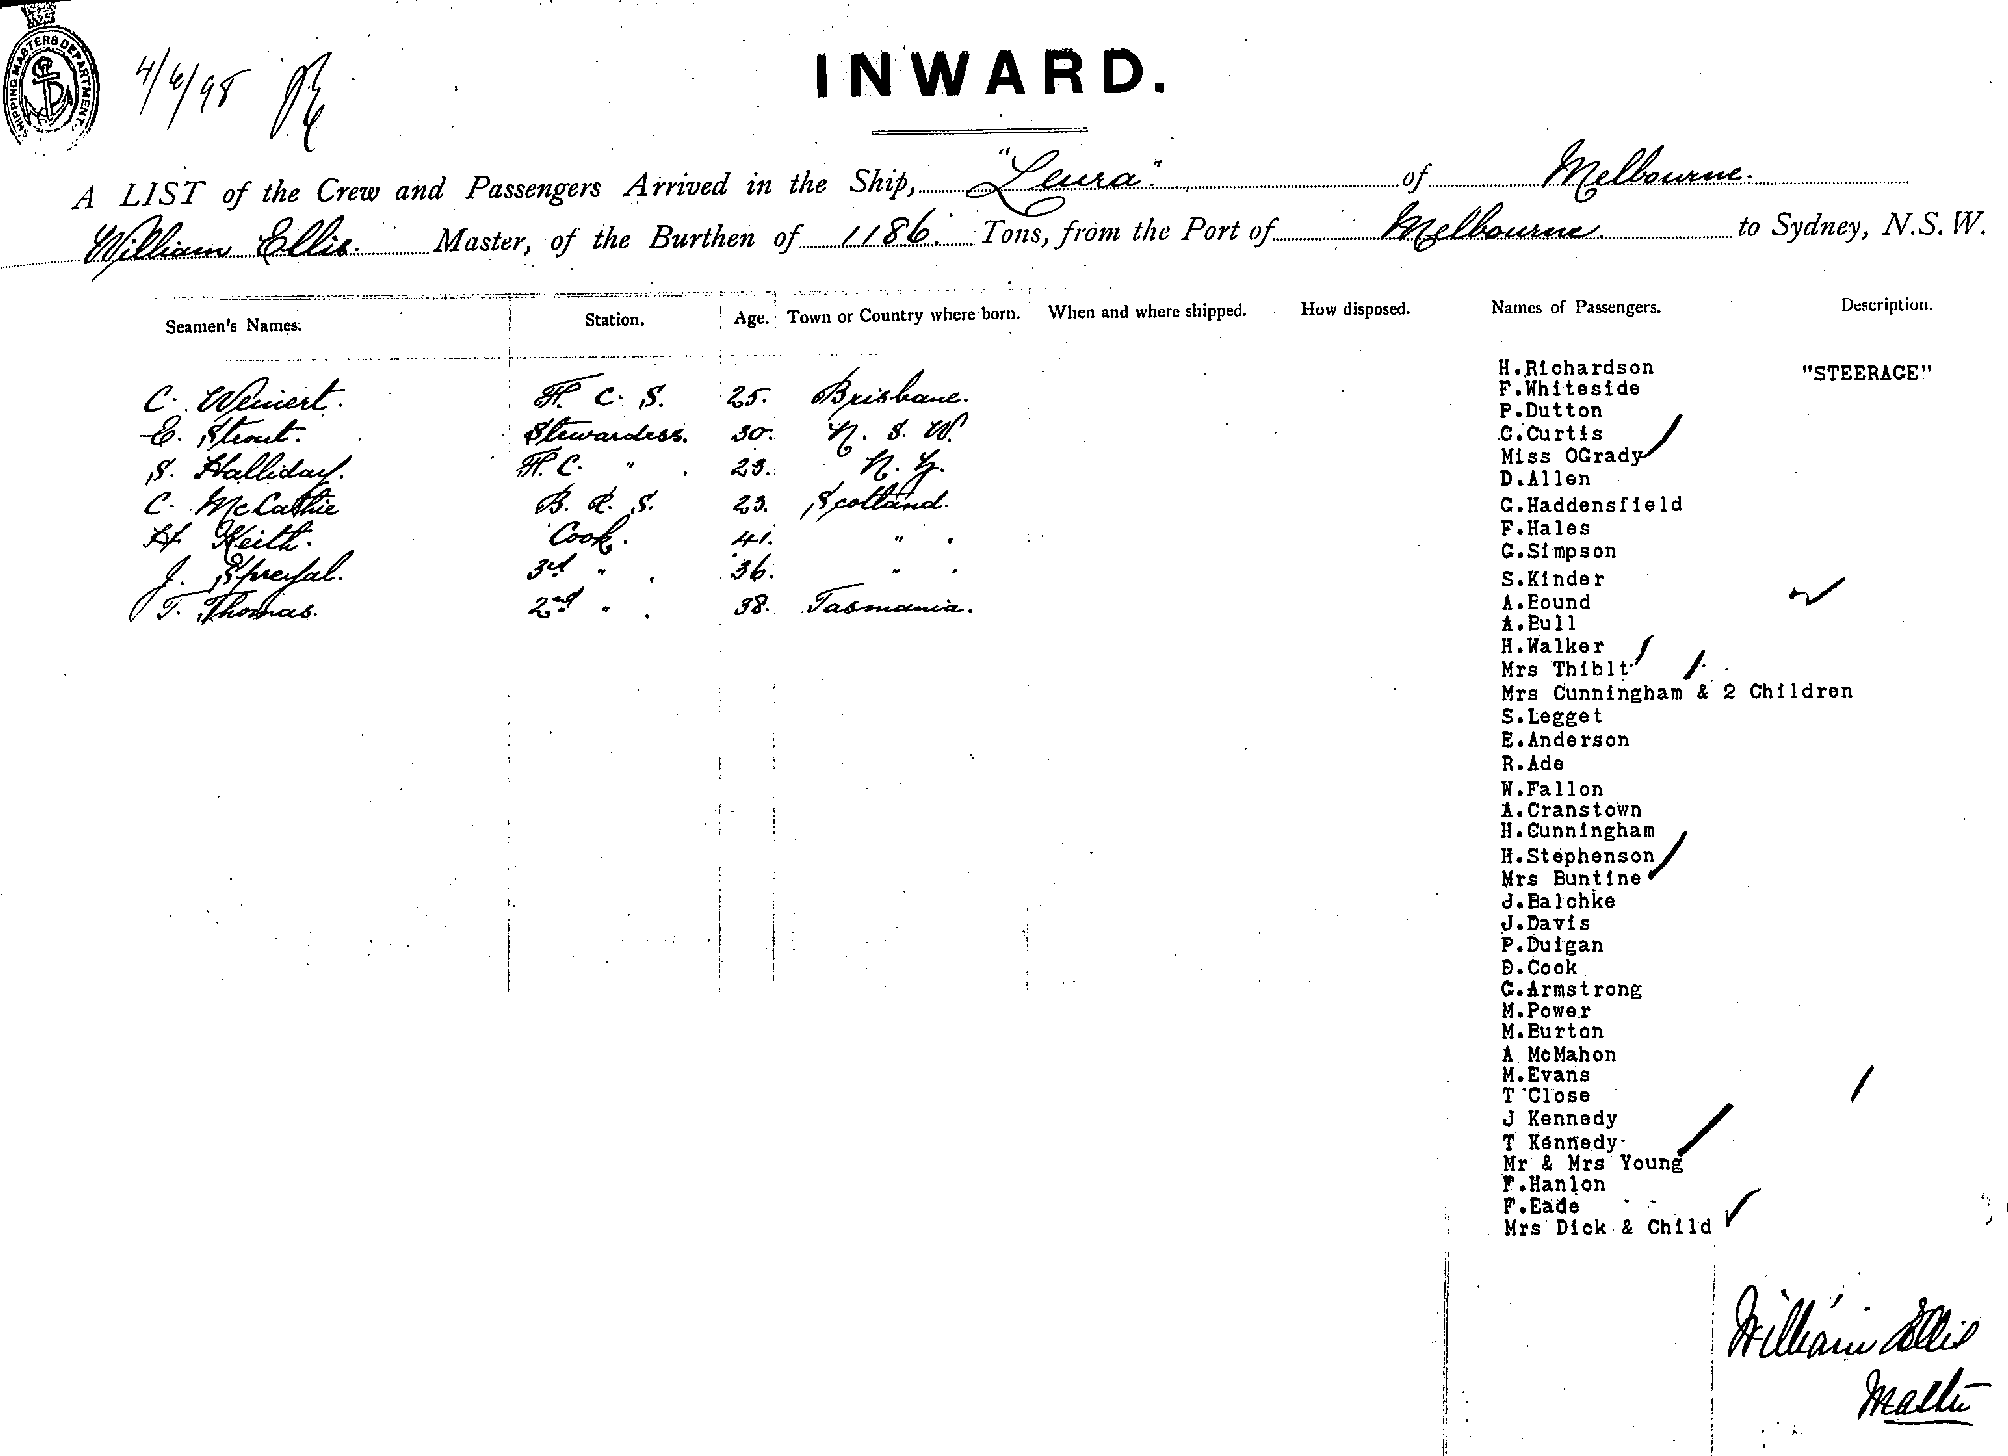 SHIPPING MASTERS DEPARTMENT.
4/6/98
INWARD.
A LIST of the Crew and Passengers Arrived in the Ship, "Leura" of Melbourne.
William Ellis. Master, of the Burthen of 1186. Tons, from the Port of Melbourne. to Sydney, N.S.W.
Seamen's Names. Station. Age. Town or Country where born. When and where shipped. How disposed. Names of Passengers. Description.
C. Weinert. F. C. S. 25. Brisbane.
E. Strout. Stewardess. 30. N. S. W.
S. Halliday. F. C. " . 23. N. Z.
C. McCathie B. R. S. 23. Scotland.
H Keith. Cook. 41. " .
J. 3rd " . 36. " .
T. Thomas. 2nd " . 38. Tasmania.
H.Richardson "STEERAGE"
F.Whiteside
P.Dutton
C.Curtis
Miss OGrady
D.Allen
G.Haddensfield
F.Hales
G.Simpson
S.Kinder
A.Bound
A.Bull
H.Walker
Mrs Thiblt
Mrs Cunningham & 2 Children
S.Legget
E.Anderson
R.Ade
W.Fallon
A.Cranstown
H.Cunningham
H.Stephenson
Mrs Buntine
J.Balchke
J.Davis
P.Duigan
D.Cook
G.Armstrong
M.Power
M.Burton
A McMahon
M.Evans
T Close
J Kennedy
T Kennedy
Mr & Mrs Young
F.Hanlon
F.Eade
Mrs Dick & Child
William Ellis
Master